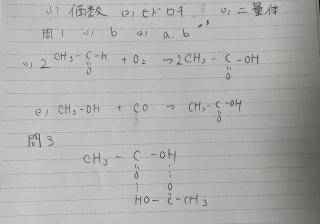 (ハ) 価数 (ロ) ヒドロキ (ハ) 二量体
問1 (1) b (2) a.b
(1) 2 CH₃-C-H + O₂ → 2CH₃-C-OH
O O
(2) CH₃-OH + CO → CH₃-C-OH
O
問3
CH₃-C-OH
O O
HO-C-CH₃